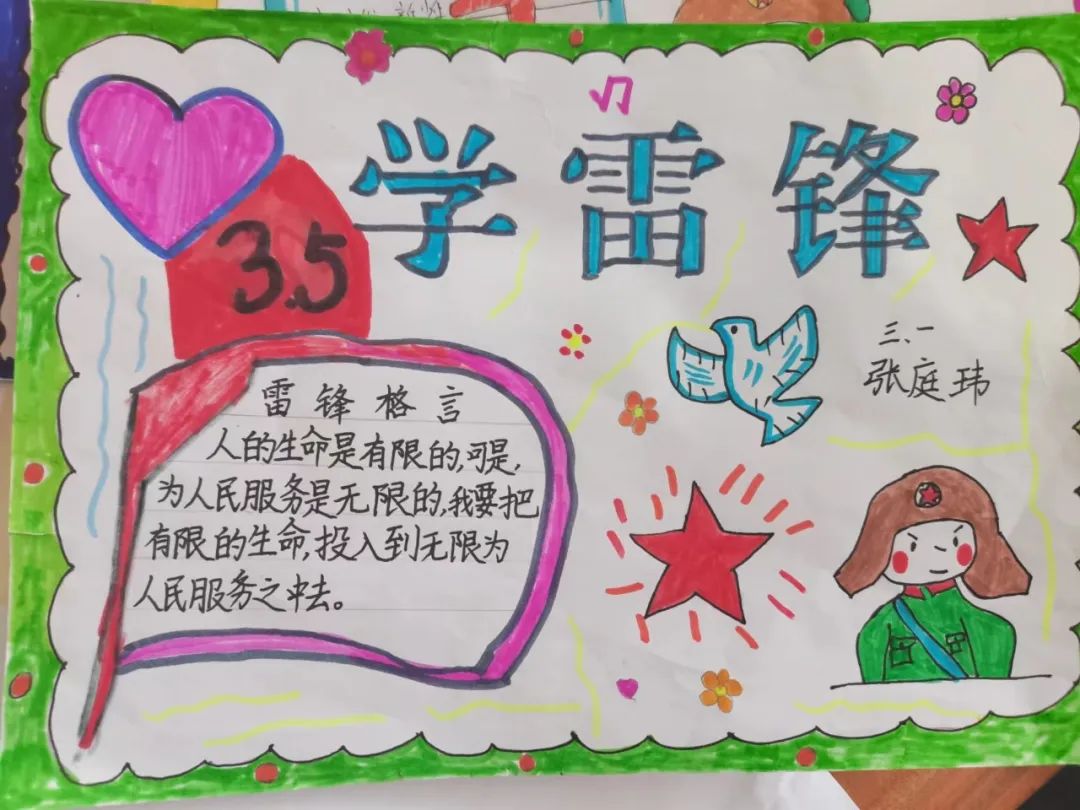 学雷锋
3.5
三、一
张庭玮
雷锋格言
人的生命是有限的,可是,
为人民服务是无限的,我要把
有限的生命,投入到无限为
人民服务之中去。